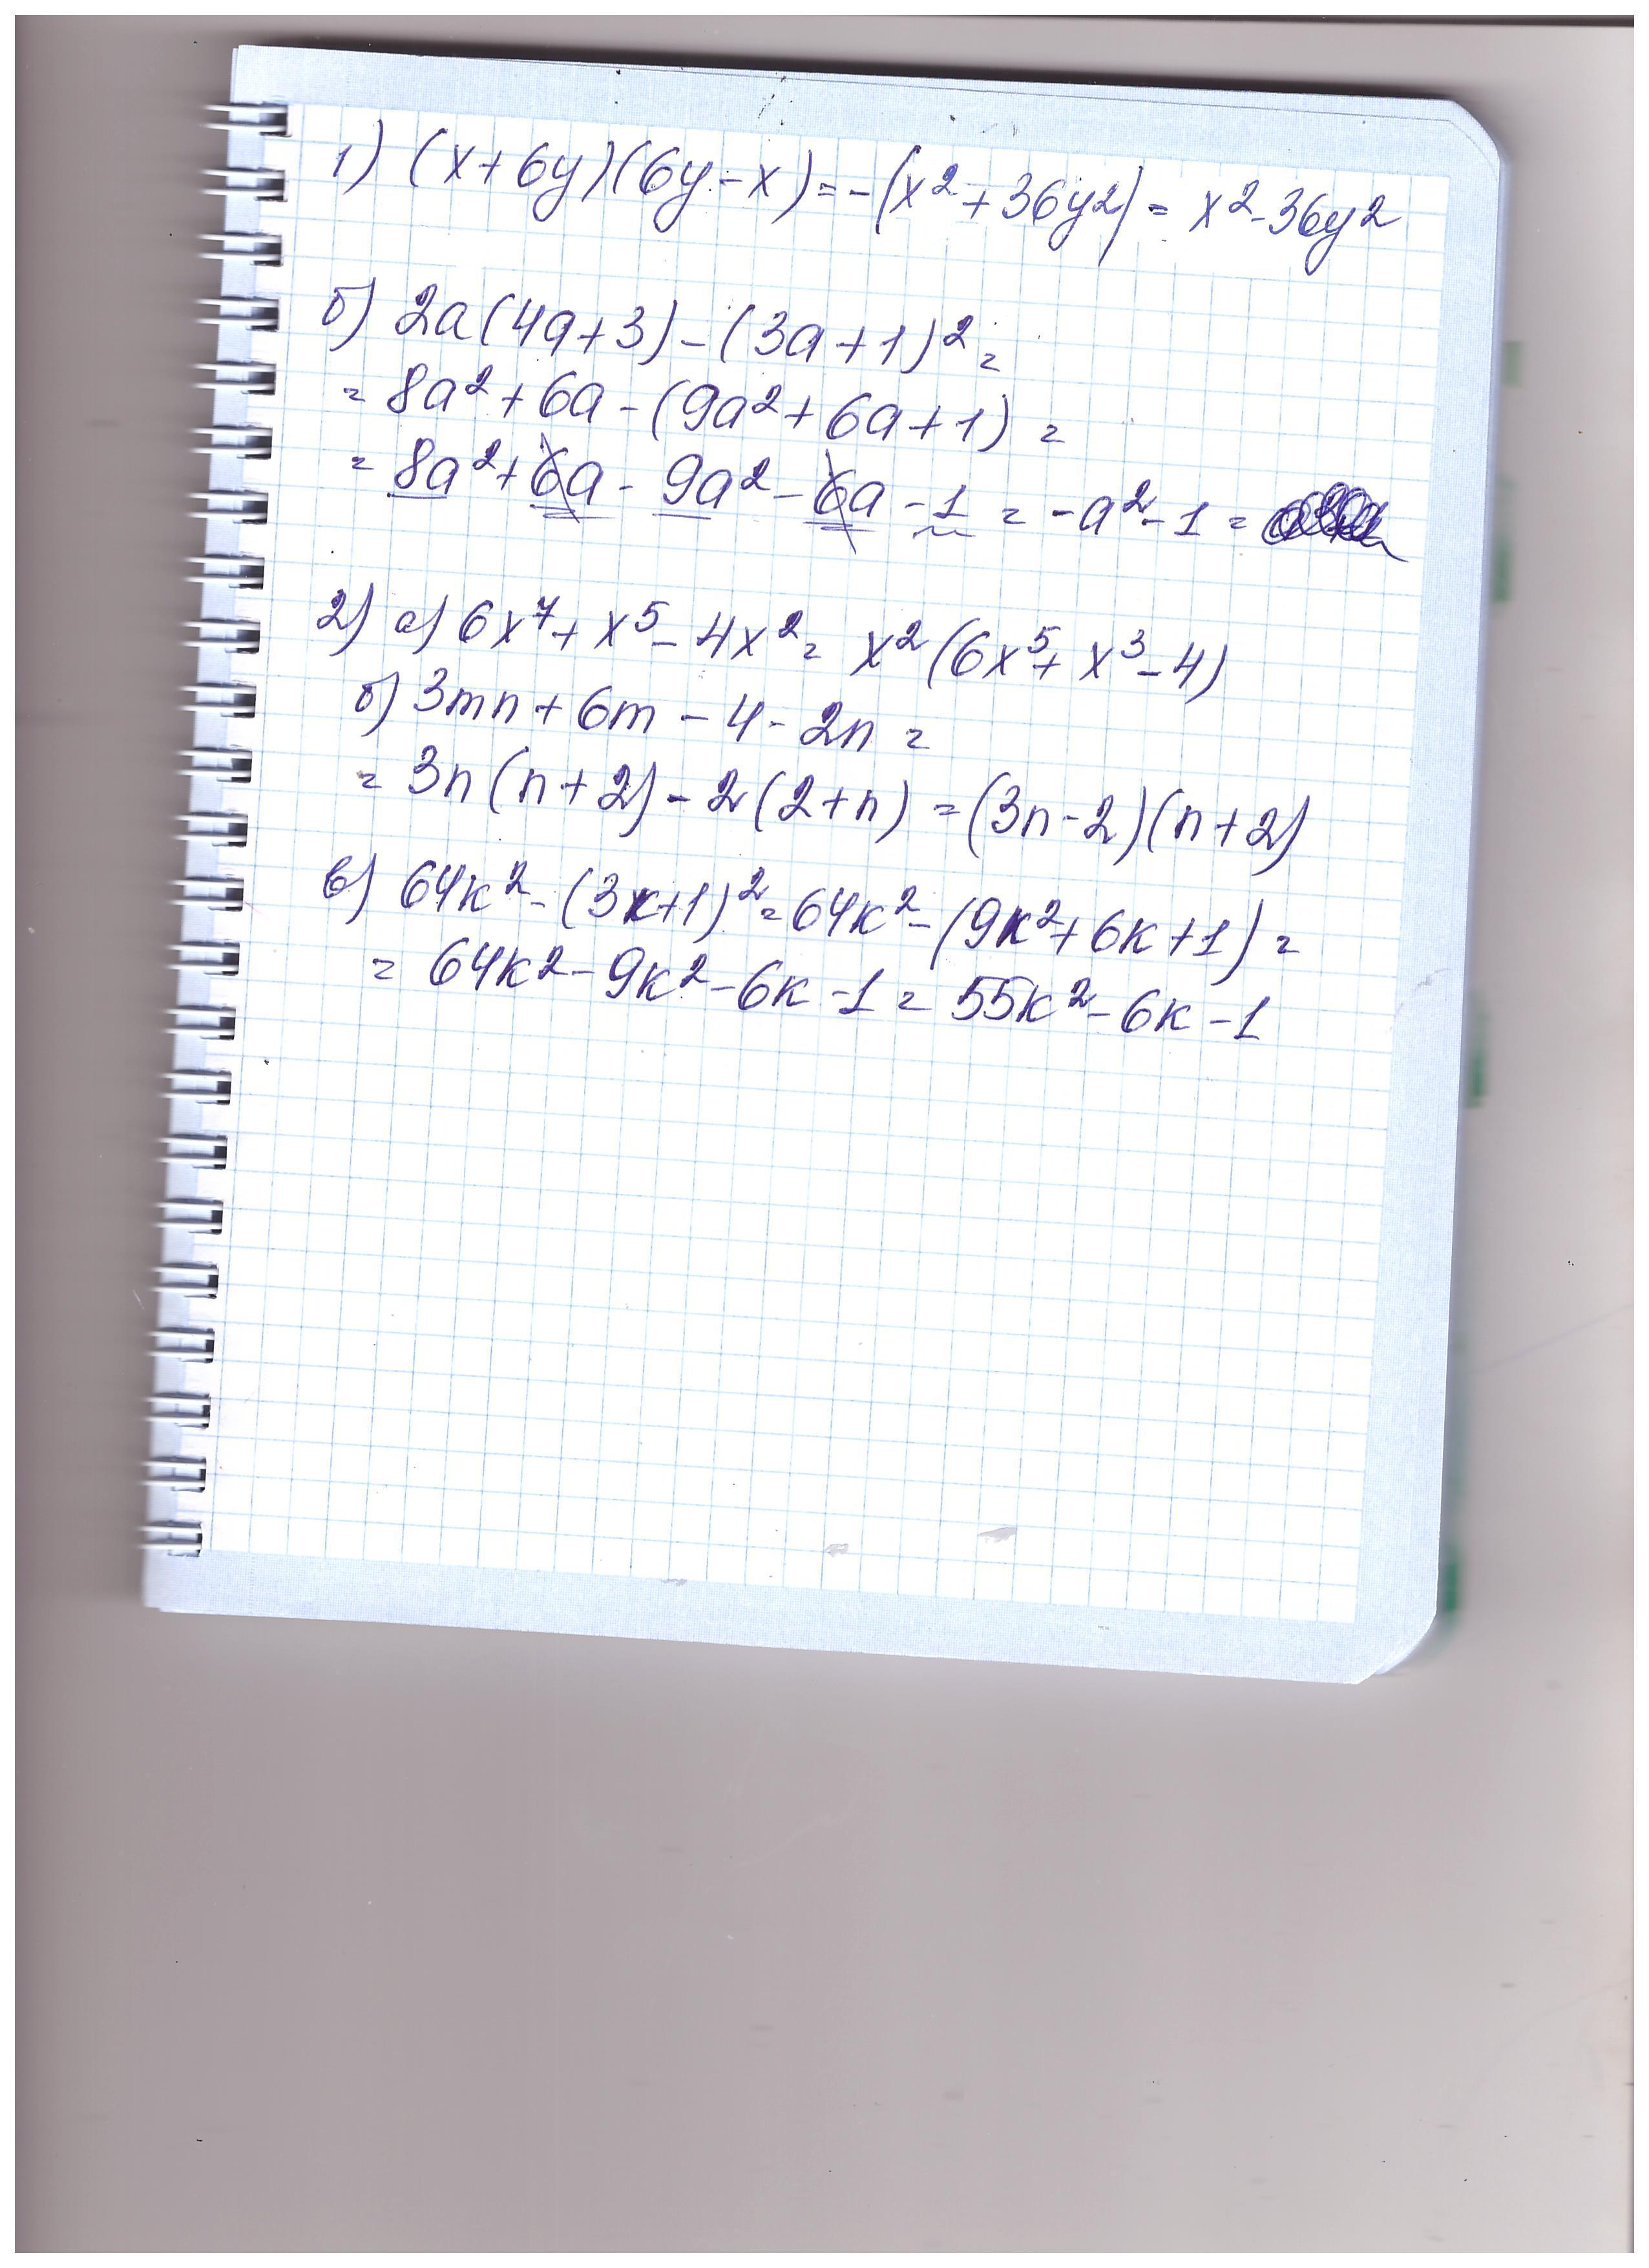 1) (x+6y)(6y-x)=-(x²+36y²)= x²-36y²
б) 2a(4a+3)-(3a+1)²=
= 8a²+6a-(9a²+6a+1) =
= 8a²+6a-9a²-6a-1 = -a²-1 =
2) а) 6x⁷+x⁵-4x²= x²(6x⁵+x³-4)
б) 3mn+6m-4-2n=
= 3n(n+2)-2(2+n)=(3n-2)(n+2)
в) 64к²-(3к+1)²=64к²-(9к²+6к+1)=
= 64к²-9к²-6к-1= 55к²-6к-1